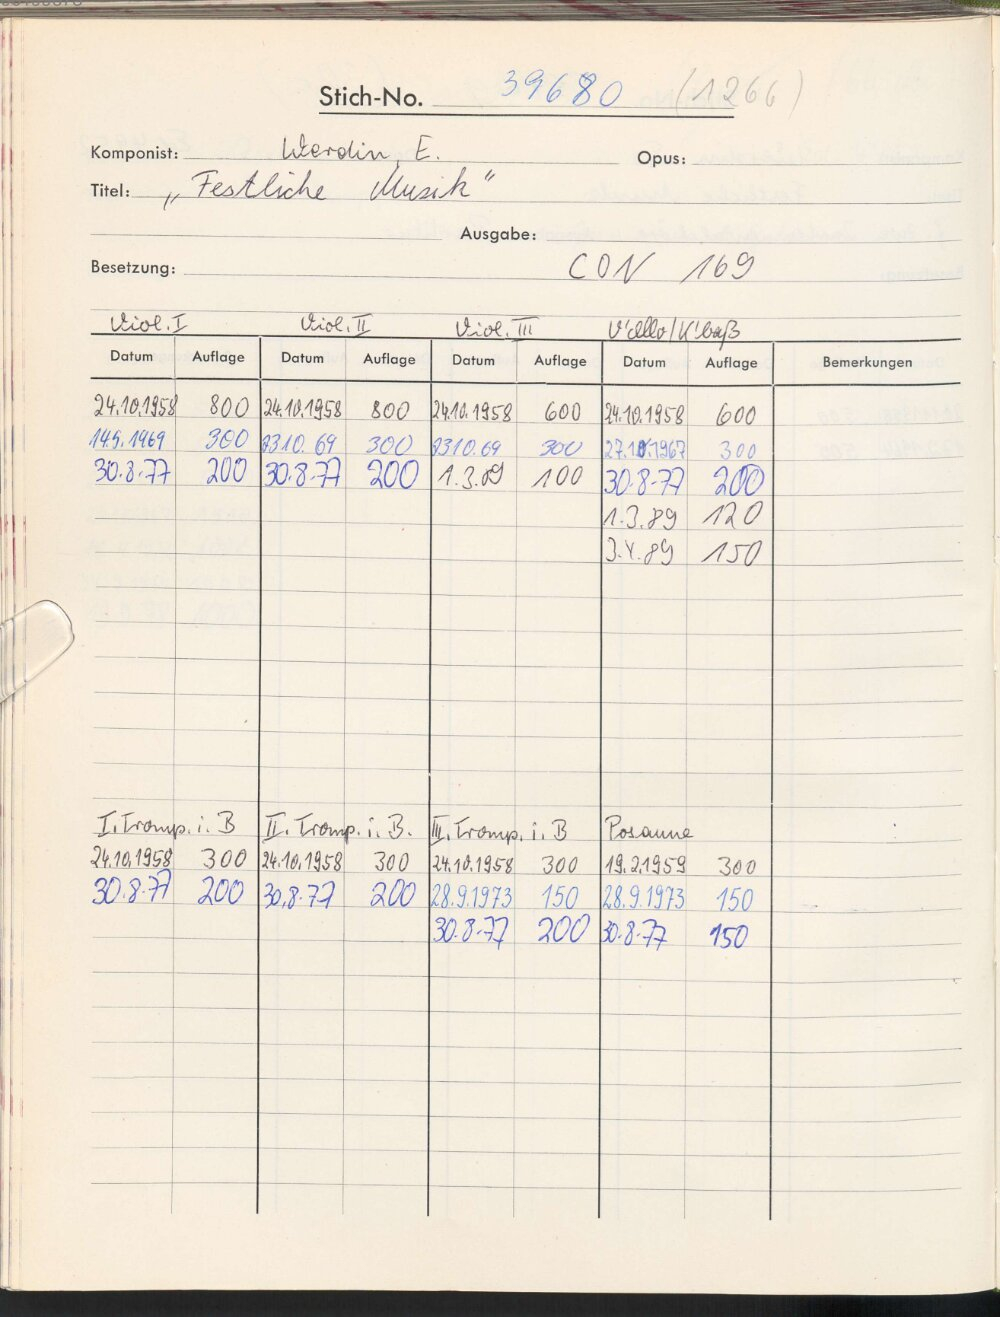 Stich-No. 39680 (1266)
Komponist: Werdin, E. Opus:
Titel: „Festliche Musik"
Ausgabe:
Besetzung: CON 169
Viol. I Viol. II Viol. III V'cello/K'baß
Datum Auflage Datum Auflage Datum Auflage Datum Auflage Bemerkungen
24.10.1958 800 24.10.1958 800 24.10.1958 600 24.10.1958 600
14.5.1969 300 2310.69 300 2310.69 300 27.10.1967 300
30.8.77 200 30.8.77 200 1.3.89 100 30.8.77 200
1.3.89 120
3.4.89 150
I. Tromp. i. B II. Tromp. i. B. III. Tromp. i. B Posaune
24.10.1958 300 24.10.1958 300 24.10.1958 300 19.2.1959 300
30.8.77 200 30.8.77 200 28.9.1973 150 28.9.1973 150
30.8.77 200 30.8.77 150